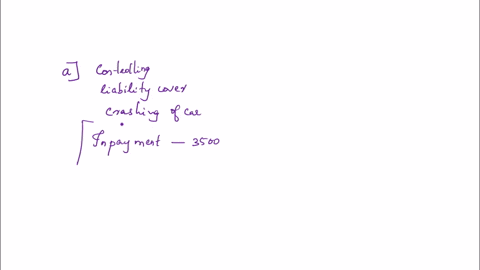 a] Controlling
liability cover
crashing of car
Inpayment — 3500